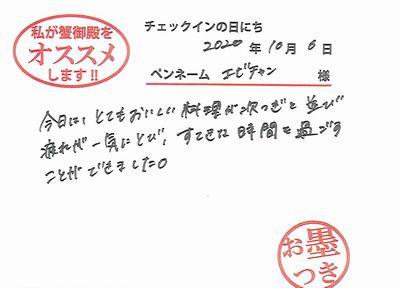 私が蟹御殿を
オススメ
します!!
チェックインの日にち
2020年10月6日
ペンネーム エビチャン 様
今日は、とてもおいしい料理が次つぎと並び
疲れが一気にとび、すてきな時間を過ごす
ことができました。
お墨
つき